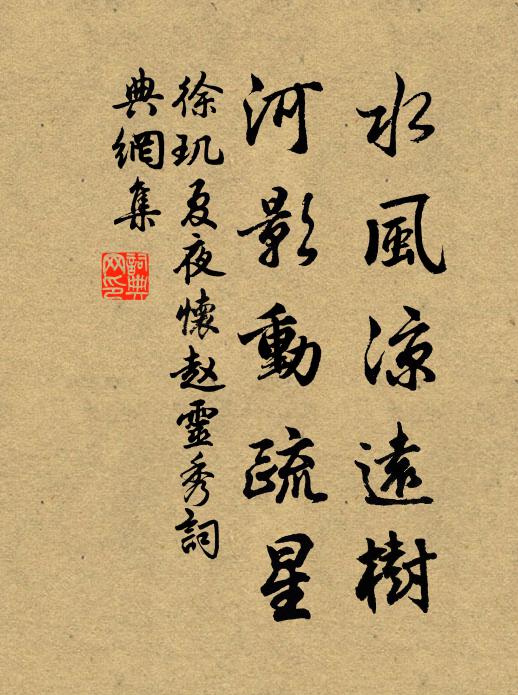 水風涼遠樹
河影動疏星
徐玑夏夜懷赵靈秀詞
典網集
詞典网印